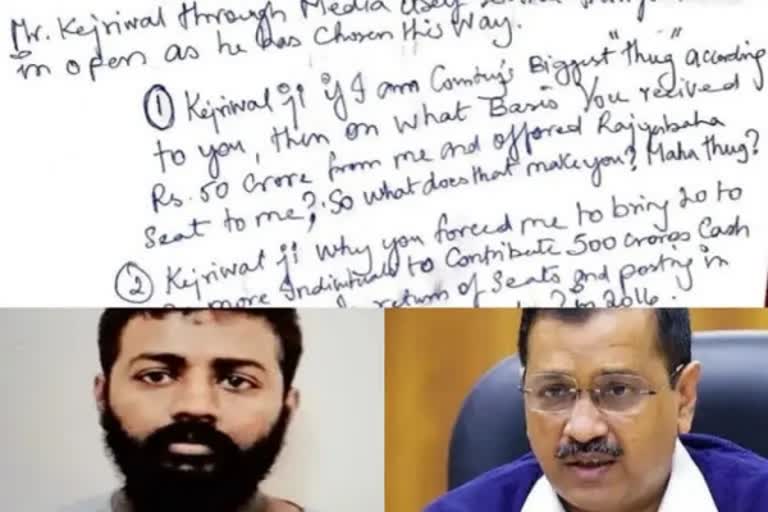 Mr. Kejriwal through Media
in open as he has chosen this way.
① Kejriwal ji if I am Country's Biggest "thug" according
to you, then on what Basis You recived
Rs. 50 Crore from me and offered Rajyabaha
Seat to me?. So what does that make you? Maha thug?
② Kejriwal ji why you forced me to bring 20 to
more Individuals to Contribute 500 crores Cash
return of Seats and posting in
2016.